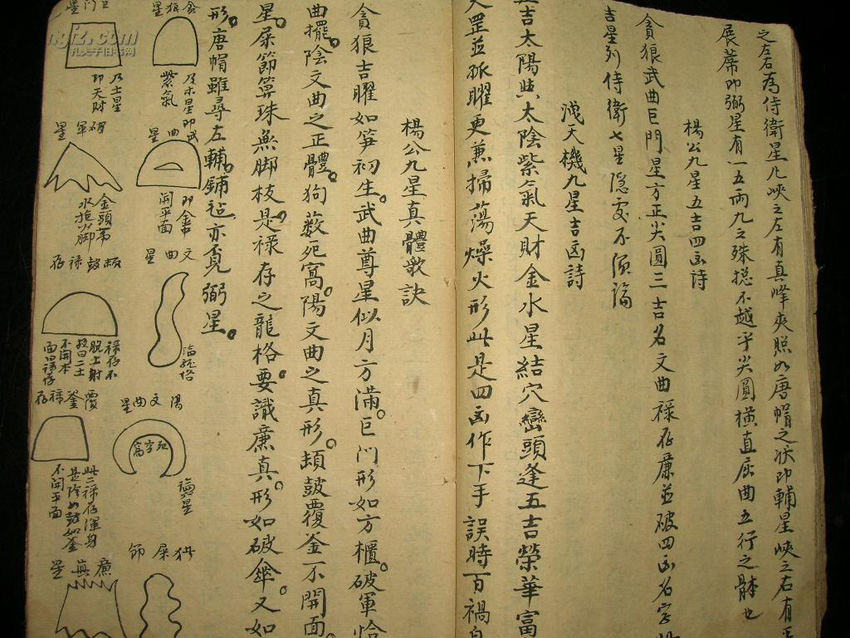 之左右為侍衛星凡峽之左有真峰夾照如唐帽之狀即輔星峽之右有
展蓆即弼星有一五兩九之殊捴不越乎尖圓橫直屈曲五行之体也
楊公九星五吉四凶詩
貪狼武曲巨門星方正尖圓三吉名文曲祿存廉並破四凶名字
吉星列侍衛七星隱変不須論
洩天機九星吉凶詩
吉太陽與太陰紫氣天財金水星結穴巒頭逢五吉榮華富
天罡並孤曜更兼掃蕩燥火形此是四凶作下手誤時百禍
楊公九星真體歌訣
貪狼吉曜如笋初生武曲尊星似月方滿巨门形如方櫃破軍恰
曲擺陰文曲之正體狗薮死窩陽文曲之真形頓鼓覆釜不開面
星屎節箅珠無脚枝是祿存之龍格要識廉真形如破傘又如
形唐帽雖尋左輔鋪毡亦覓弼星
貪狼星
紫氣
乃木星即
武曲星
開平面
文曲星
陽文曲星
窩字死
屎節
巨门星
乃土星
即天財
破軍星
金頭
水
脚
鼓祿存
祿存不
不開木
覆釜祿存
此二祿存渾身
不開平面
廉真星